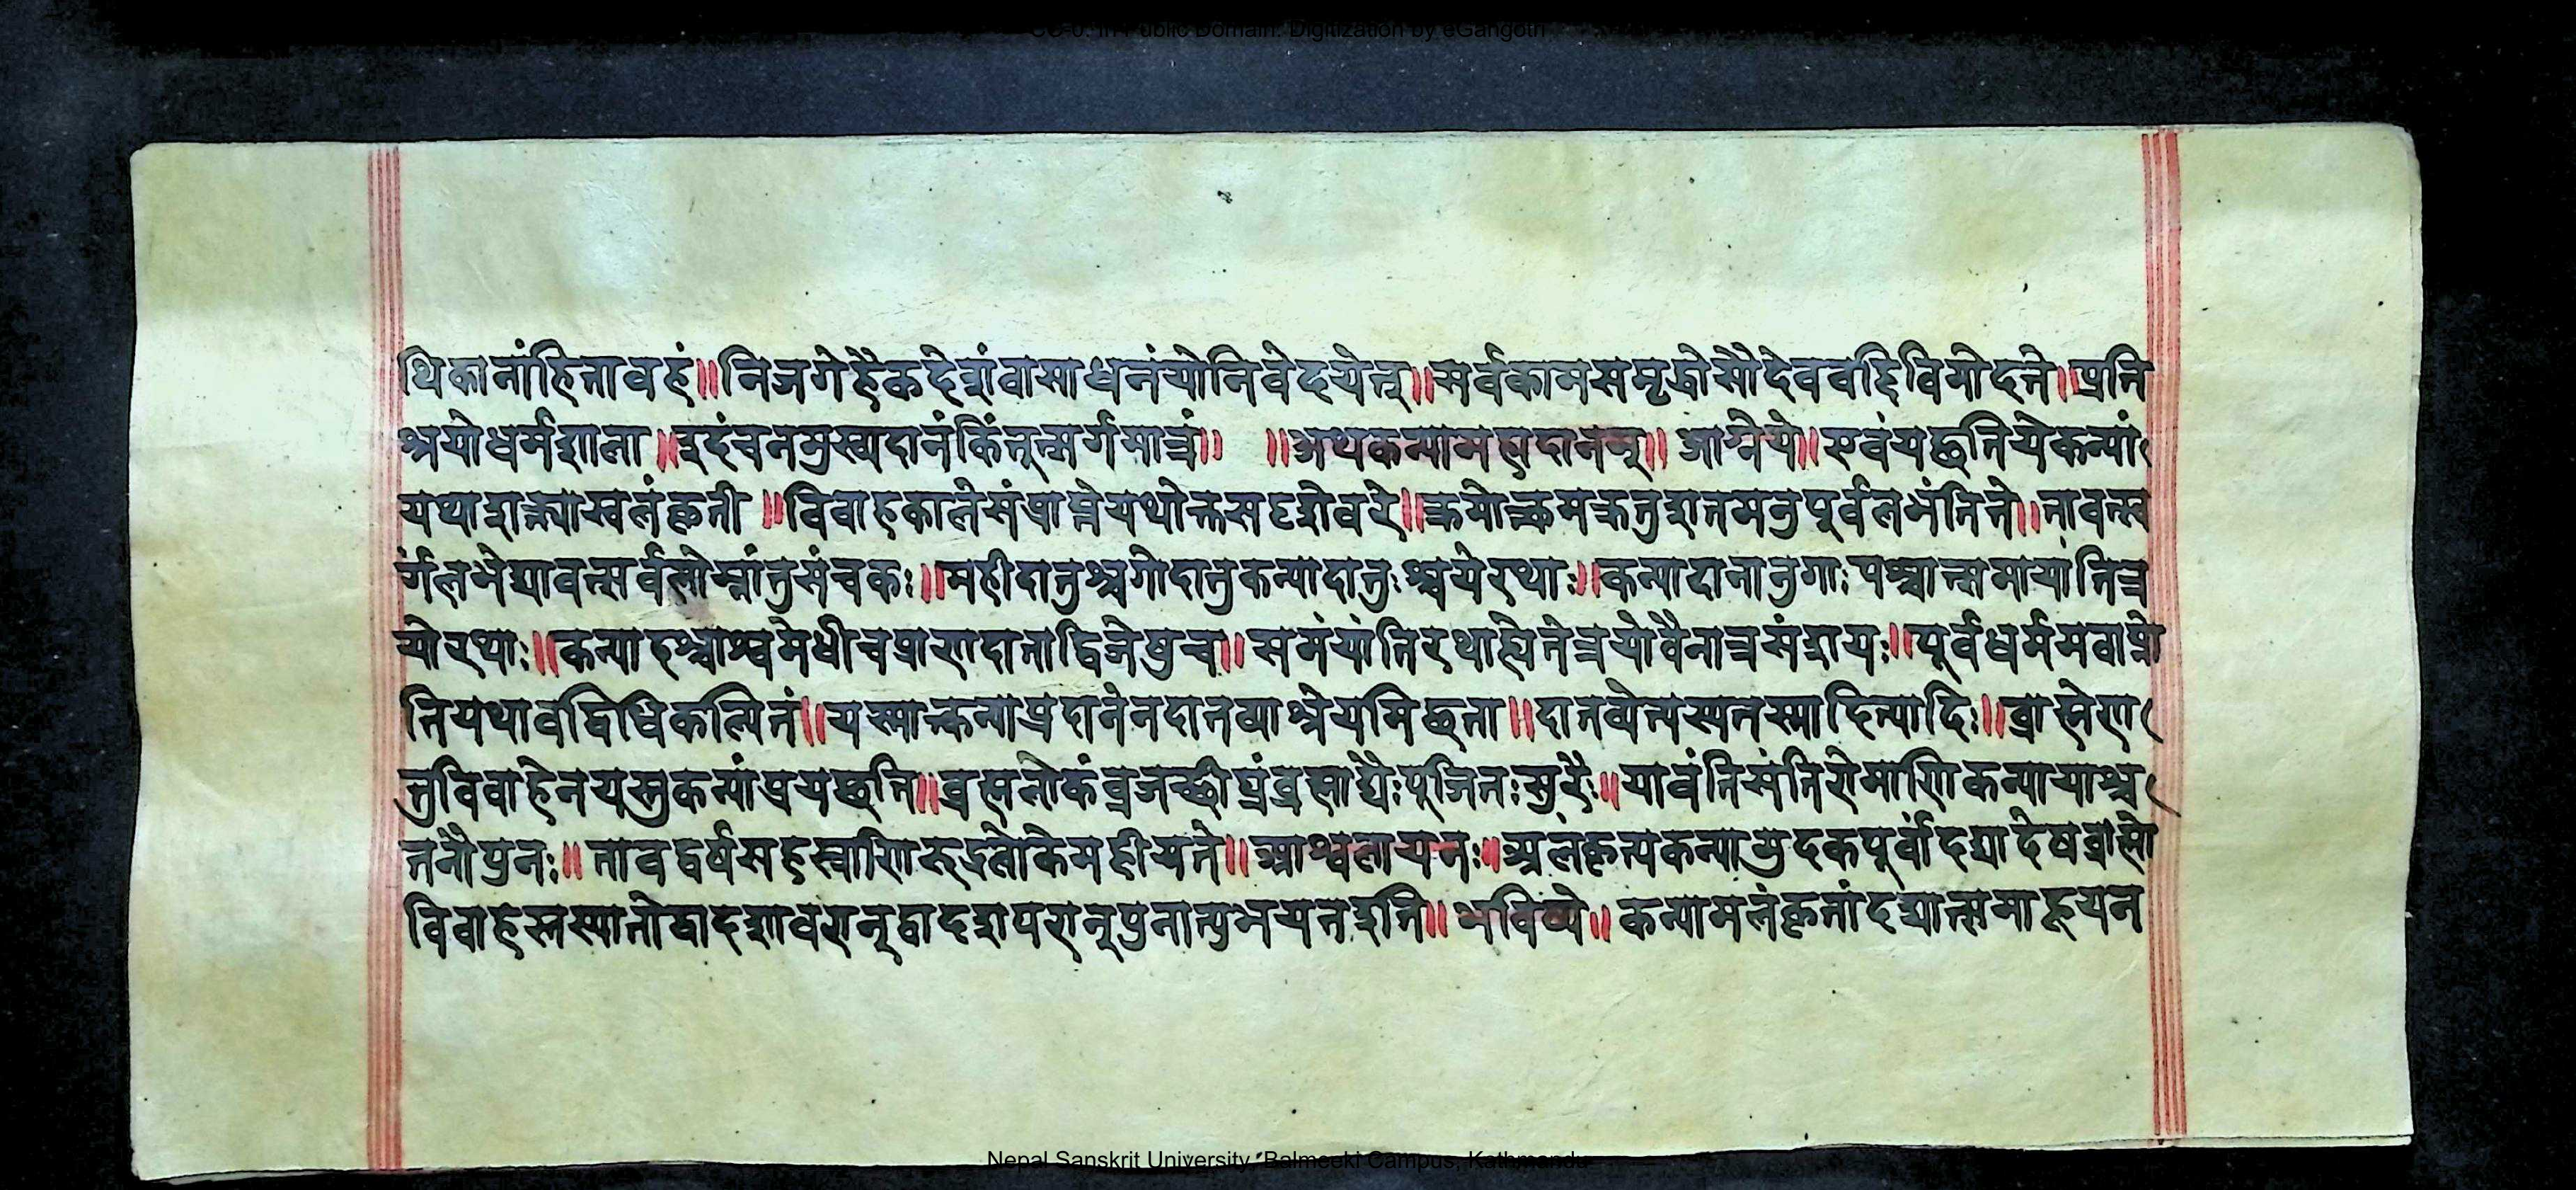 CC-0. In Public Domain. Digitization by eGangotri
थिकानांहितावहं॥निजगेहैकदेशंवासाधनंयोनिवेदयेत्॥सर्वकामसमृद्धोसौदेववद्दिविमोदते॥प्रति
श्रयोधर्मशाला॥इदंचनमुख्यदानंकिंतूत्सर्गमात्रं॥ ॥अथकन्यामहादानम्॥आग्नेये॥एवंयछतियेकन्यां
यथाशक्त्यास्वलंकृती॥विवाहकालेसंप्राप्तेयथोक्तसदृशेवरे॥क्रमात्क्रमक्रतुशतमनुपूर्वलभंतिते॥तावत्स्व
र्गंलभेद्यावत्सर्वलोम्नांतुसंचकः॥महीदातुश्चगोदातुकन्यादातुःश्चयेरथाः॥कन्यादानानुगाःपश्चात्समायांतित्र
योरथाः॥कन्याहश्चाश्वमेधीचप्राणदाताद्विजेषुच॥समंयांतिरथाह्येतेत्रयोवैनात्रसंशयः॥पूर्वधर्ममवाप्नो
तियथावद्विधिकल्पितं॥यस्मात्कन्याप्रदानेनदातव्याश्रेयमिछता॥दातव्येत्यस्यतस्मादित्यादिः॥ब्राह्मेण
तुविवाहेनयस्तुकन्यांप्रयछति॥ब्रह्मलोकंव्रजच्छीघ्रंब्रह्माद्यैःपूजितःसुरैः॥यावंतिसंतिरोमाणिकन्यायाश्च
तनौपुनः॥तावद्वर्षसहस्त्राणिरुद्रलोकेमहीयते॥आश्वलायनः॥अलंकृत्यकन्यामुदकपूर्वांदद्यादेषब्राह्मो
विवाहस्तस्यांतोद्वादशावरान्द्वादशपरान्पुनात्युभयतइति॥भविष्ये॥कन्यामलंकृतांदद्यात्समाहूयत
Nepal Sanskrit University, Balmeeki Campus, Kathmandu